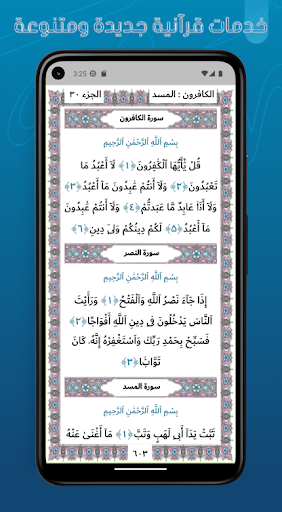 خدمات قرآنية جديدة ومتنوعة
3:25
الكافرون : المسد
الجزء ٣٠
سورة الكافرون
بِسْمِ اللَّهِ الرَّحْمَٰنِ الرَّحِيمِ
قُلْ يَٰٓأَيُّهَا ٱلْكَٰفِرُونَ ﴿١﴾ لَآ أَعْبُدُ مَا
تَعْبُدُونَ ﴿٢﴾ وَلَآ أَنتُمْ عَٰبِدُونَ مَآ أَعْبُدُ ﴿٣﴾
وَلَآ أَنَا۠ عَابِدٌ مَّا عَبَدتُّمْ ﴿٤﴾ وَلَآ أَنتُمْ عَٰبِدُونَ
مَآ أَعْبُدُ ﴿٥﴾ لَكُمْ دِينُكُمْ وَلِىَ دِينِ ﴿٦﴾
سورة النصر
بِسْمِ اللَّهِ الرَّحْمَٰنِ الرَّحِيمِ
إِذَا جَآءَ نَصْرُ ٱللَّهِ وَٱلْفَتْحُ ﴿١﴾ وَرَأَيْتَ
ٱلنَّاسَ يَدْخُلُونَ فِى دِينِ ٱللَّهِ أَفْوَاجًا ﴿٢﴾
فَسَبِّحْ بِحَمْدِ رَبِّكَ وَٱسْتَغْفِرْهُ إِنَّهُۥ كَانَ
تَوَّابًۢا ﴿٣﴾
سورة المسد
بِسْمِ اللَّهِ الرَّحْمَٰنِ الرَّحِيمِ
تَبَّتْ يَدَآ أَبِى لَهَبٍ وَتَبَّ ﴿١﴾ مَآ أَغْنَىٰ عَنْهُ
٦٠٣